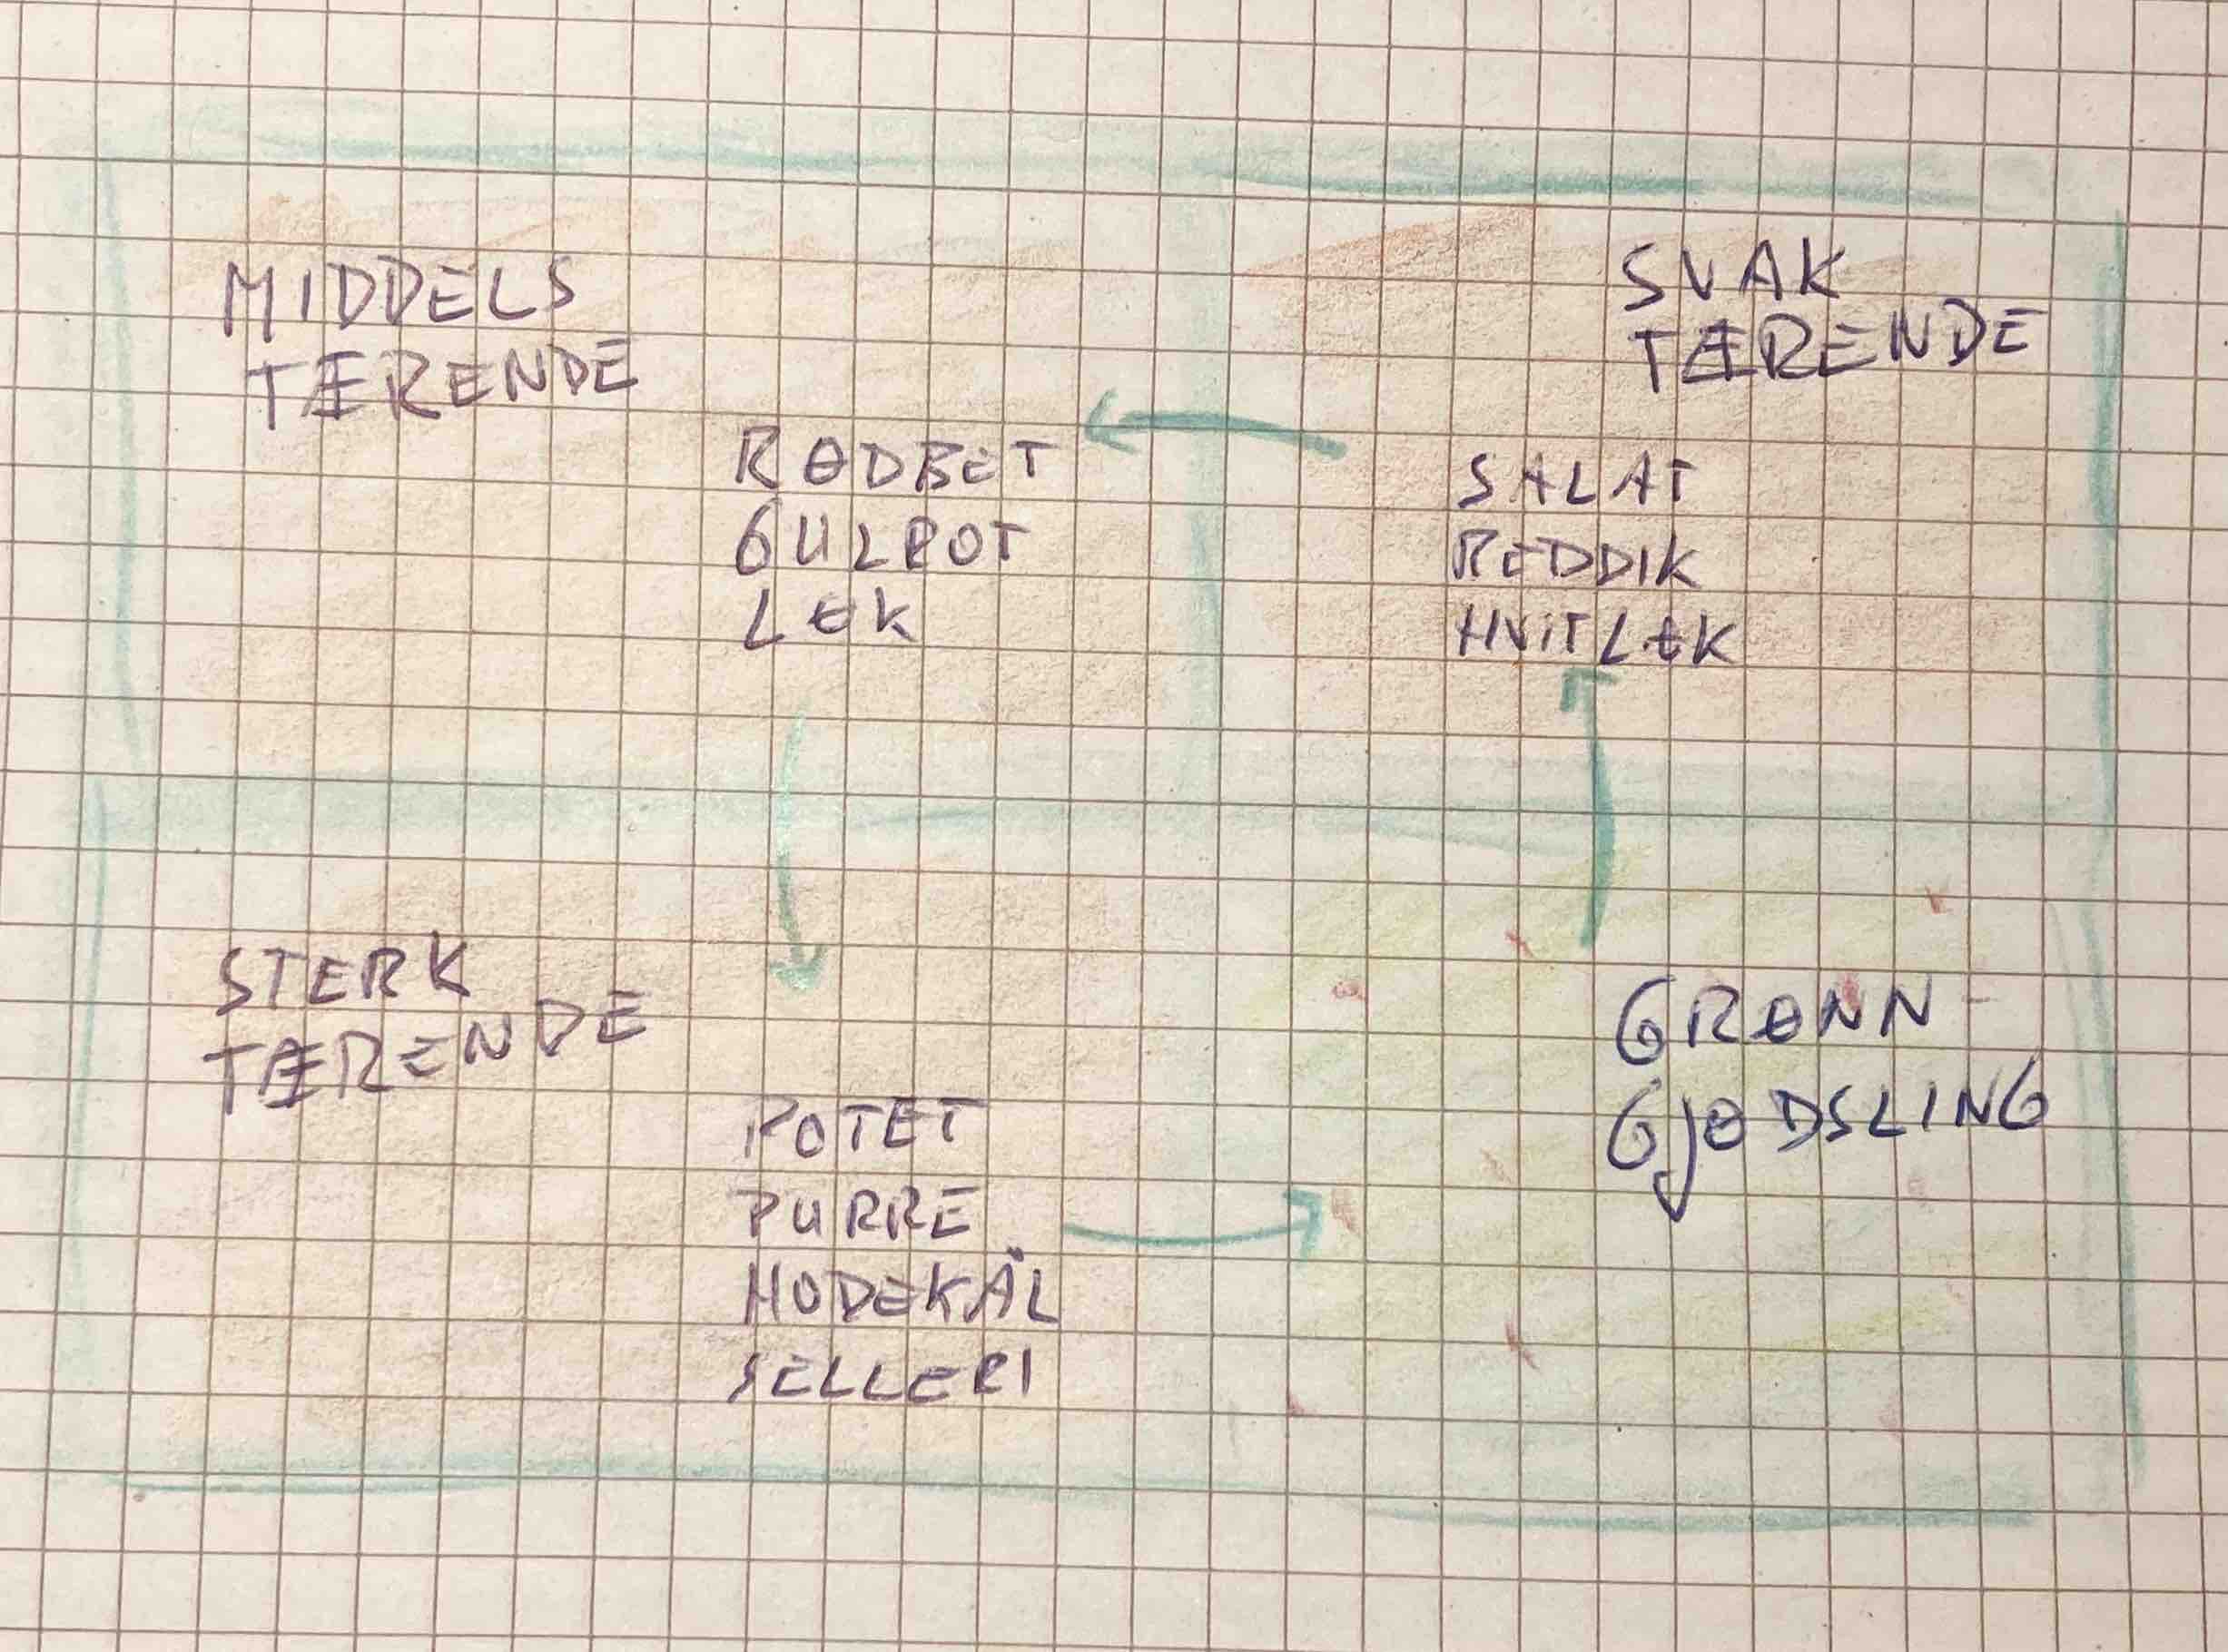 MIDDELS
TÆRENDE
RØDBET
GULROT
LØK
SVAK
TÆRENDE
SALAT
REDDIK
HVITLØK
STERK
TÆRENDE
POTET
PURRE
HODEKÅL
SELLERI
GRØNN-
GJØDSLING